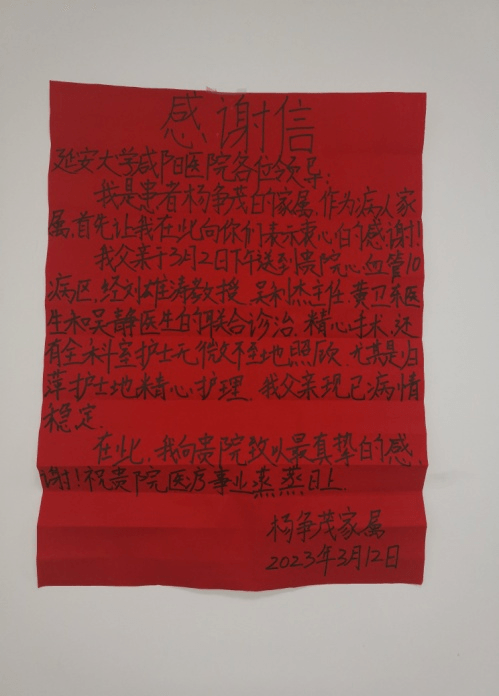 感谢信
延安大学咸阳医院各位领导:
我是患者杨争茂的家属,作为病人家
属,首先让我在此向你们表示衷心的感谢!
我父亲于3月2日下午送到贵院心血管10
病区,经刘雄涛教授、吴利杰主任、黄卫东医
生和吴静医生的联合诊治,精心手术,还
有全科室护士无微不至地照顾,尤其是归
萍护士地精心护理,我父亲现已病情
稳定。
在此,我向贵院致以最真挚的感
谢!祝贵院医疗事业蒸蒸日上
杨争茂家属
2023年3月12日